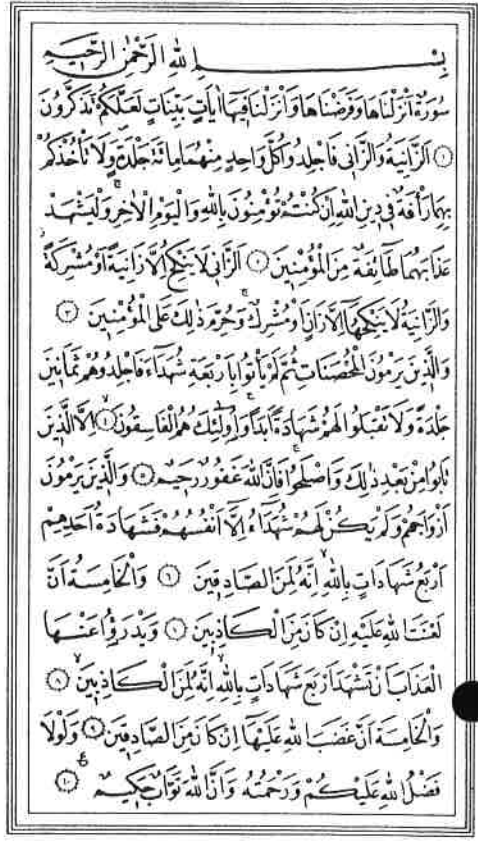 بِسْمِ اللهِ الرَّحْمٰنِ الرَّحِيمِ
سُورَةٌ اَنْزَلْنَاهَا وَفَرَضْنَاهَا وَاَنْزَلْنَا فِيهَا اٰيَاتٍ بَيِّنَاتٍ لَعَلَّكُمْ تَذَكَّرُونَ
﴿١﴾ اَلزَّانِيَةُ وَالزَّانِي فَاجْلِدُوا كُلَّ وَاحِدٍ مِنْهُمَا مِائَةَ جَلْدَةٍ وَلَا تَأْخُذْكُمْ
بِهِمَا رَأْفَةٌ فِي دِينِ اللهِ اِنْ كُنْتُمْ تُؤْمِنُونَ بِاللهِ وَالْيَوْمِ الْاٰخِرِ وَلْيَشْهَدْ
عَذَابَهُمَا طَائِفَةٌ مِنَ الْمُؤْمِنِينَ ﴿٢﴾ اَلزَّانِي لَا يَنْكِحُ اِلَّا زَانِيَةً اَوْ مُشْرِكَةً
وَالزَّانِيَةُ لَا يَنْكِحُهَا اِلَّا زَانٍ اَوْ مُشْرِكٌ وَحُرِّمَ ذٰلِكَ عَلَى الْمُؤْمِنِينَ ﴿٣﴾
وَالَّذِينَ يَرْمُونَ الْمُحْصَنَاتِ ثُمَّ لَمْ يَأْتُوا بِاَرْبَعَةِ شُهَدَاءَ فَاجْلِدُوهُمْ ثَمَانِينَ
جَلْدَةً وَلَا تَقْبَلُوا لَهُمْ شَهَادَةً اَبَدًا وَاُولٰئِكَ هُمُ الْفَاسِقُونَ ﴿٤﴾ اِلَّا الَّذِينَ
تَابُوا مِنْ بَعْدِ ذٰلِكَ وَاَصْلَحُوا فَاِنَّ اللهَ غَفُورٌ رَحِيمٌ ﴿٥﴾ وَالَّذِينَ يَرْمُونَ
اَزْوَاجَهُمْ وَلَمْ يَكُنْ لَهُمْ شُهَدَاءُ اِلَّا اَنْفُسُهُمْ فَشَهَادَةُ اَحَدِهِمْ
اَرْبَعُ شَهَادَاتٍ بِاللهِ اِنَّهُ لَمِنَ الصَّادِقِينَ ﴿٦﴾ وَالْخَامِسَةُ اَنَّ
لَعْنَتَ اللهِ عَلَيْهِ اِنْ كَانَ مِنَ الْكَاذِبِينَ ﴿٧﴾ وَيَدْرَؤُا عَنْهَا
الْعَذَابَ اَنْ تَشْهَدَ اَرْبَعَ شَهَادَاتٍ بِاللهِ اِنَّهُ لَمِنَ الْكَاذِبِينَ ﴿٨﴾
وَالْخَامِسَةَ اَنَّ غَضَبَ اللهِ عَلَيْهَا اِنْ كَانَ مِنَ الصَّادِقِينَ ﴿٩﴾ وَلَوْلَا
فَضْلُ اللهِ عَلَيْكُمْ وَرَحْمَتُهُ وَاَنَّ اللهَ تَوَّابٌ حَكِيمٌ ﴿١٠﴾